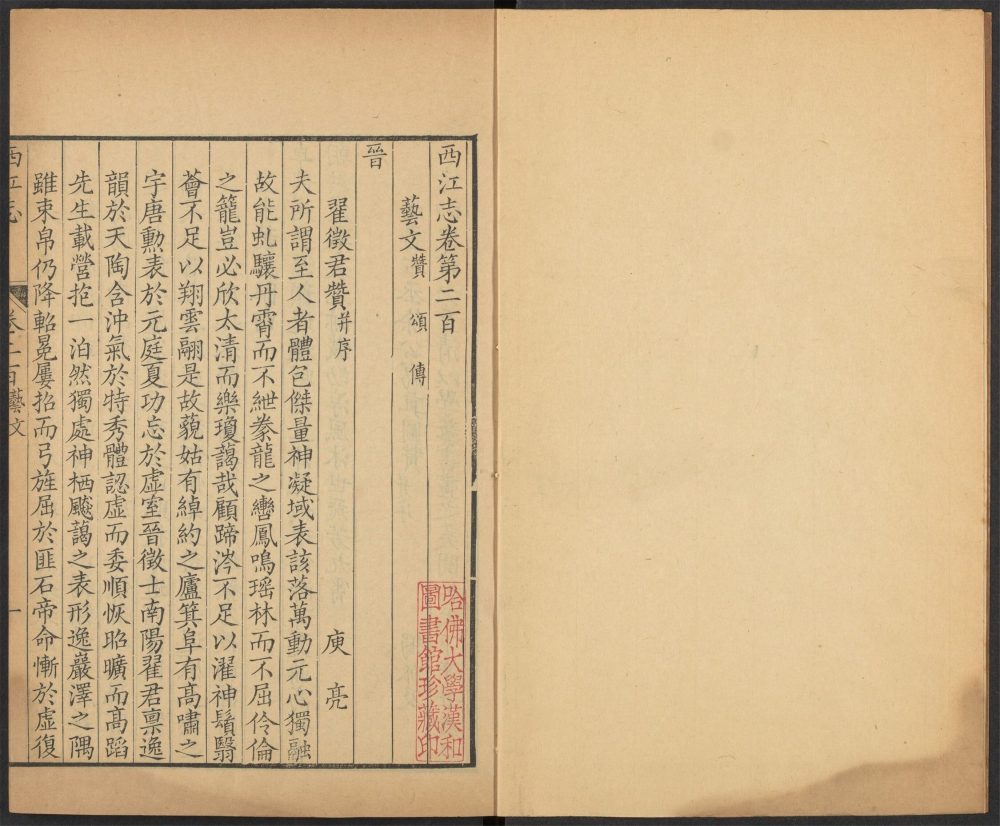 西江志卷第二百
藝文 贊 頌 傳
晉
翟徵君贊 并序 庾亮
夫所謂至人者體包傑量神凝域表該落萬動元心獨融
故能虬驤丹霄而不紲豢龍之轡鳳鳴瑶林而不屈伶倫
之籠豈必欣太清而樂瓊藹哉顧蹄涔不足以濯神鬚翳
薈不足以翔雲翮是故藐姑有綽約之廬箕阜有高嘯之
宇唐勳表於元庭夏功忘於虛室晉徵士南陽翟君禀逸
韻於天陶含沖氣於特秀體認虛而委順恢昭曠而高蹈
先生載營抱一泊然獨處神栖飈藹之表形逸巖澤之隅
雖束帛仍降軺冕屢招而弓旌屈於匪石帝命慚於虛復
西江志
卷二百藝文
一
哈佛大學漢和
圖書館珍藏印